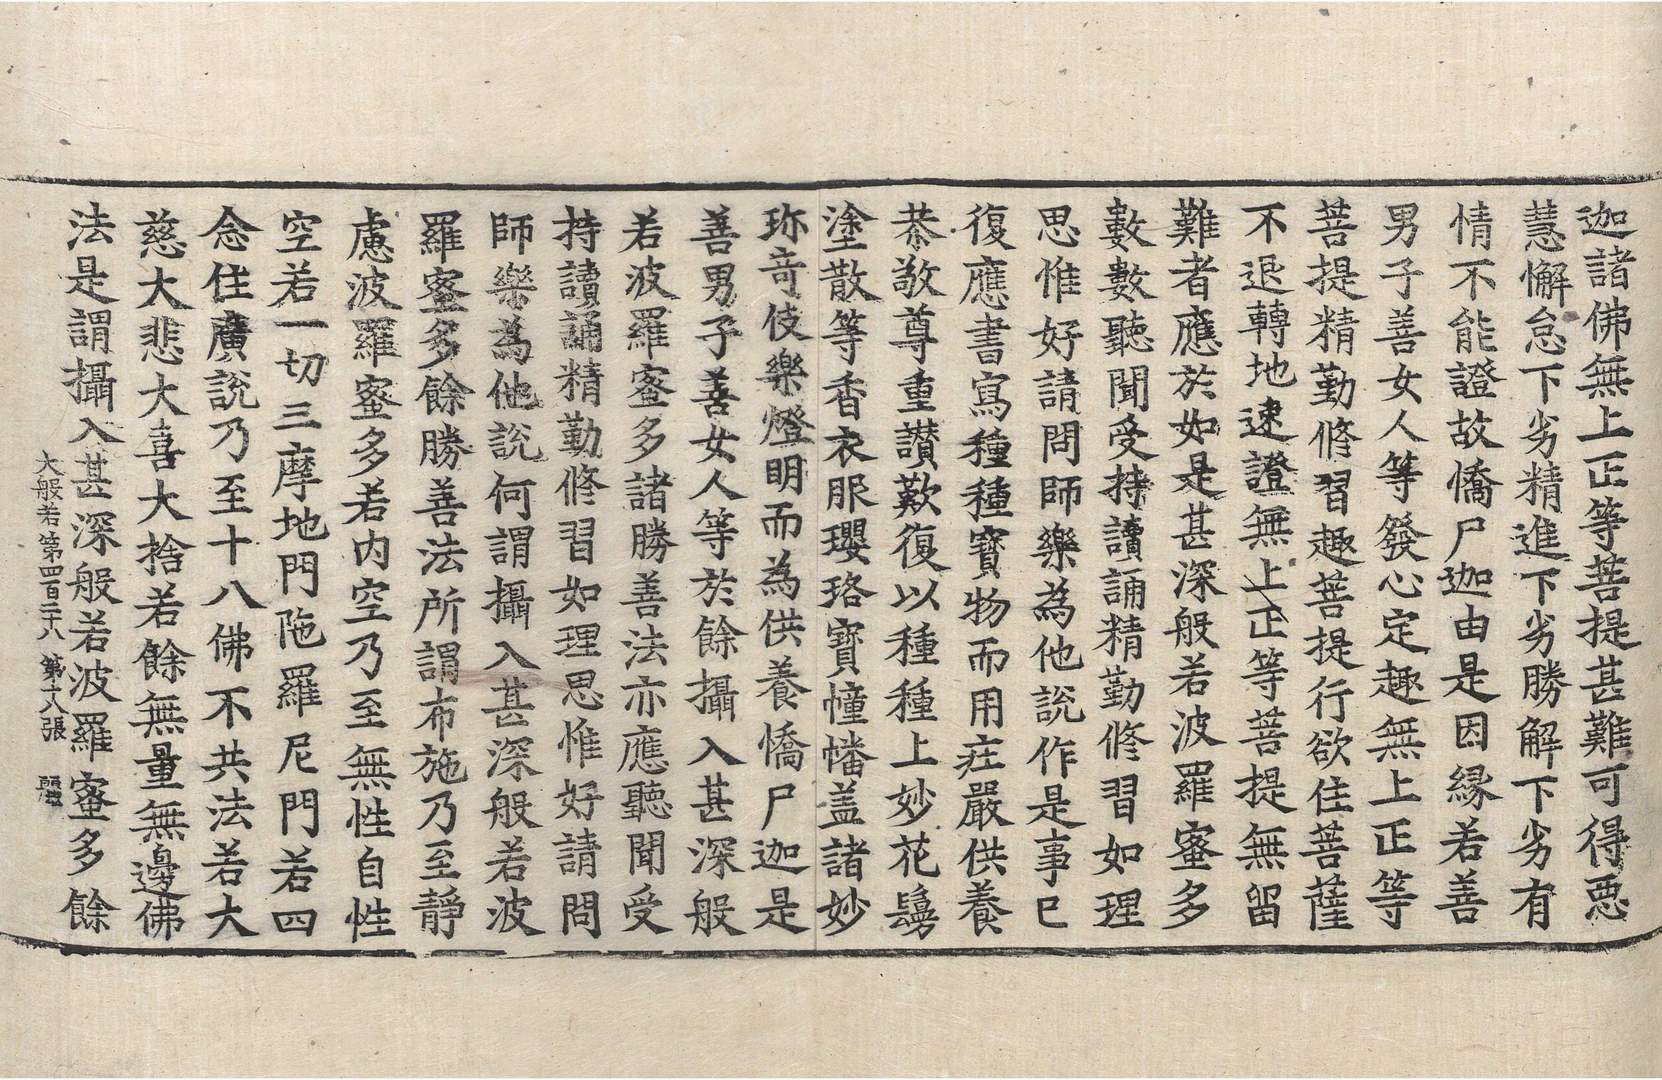 迦諸佛無上正等菩提甚難可得惡
慧懈怠下劣精進下劣勝解下劣有
情不能證故憍尸迦由是因緣若善
男子善女人等發心定趣無上正等
菩提精勤修習趣菩提行欲住菩薩
不退轉地速證無上正等菩提無留
難者應於如是甚深般若波羅蜜多
數數聽聞受持讀誦精勤修習如理
思惟好請問師樂為他說作是事已
復應書寫種種寶物而用莊嚴供養
恭敬尊重讃歎復以種種上妙花鬘
塗散等香衣服瓔珞寶幢幡盖諸妙
珎奇伎樂燈明而為供養憍尸迦是
善男子善女人等於餘攝入甚深般
若波羅蜜多諸勝善法亦應聽聞受
持讀誦精勤修習如理思惟好請問
師樂為他說何謂攝入甚深般若波
羅蜜多餘勝善法所謂布施乃至靜
慮波羅蜜多若內空乃至無性自性
空若一切三摩地門陁羅尼門若四
念住廣說乃至十八佛不共法若大
慈大悲大喜大捨若餘無量無邊佛
法是謂攝入甚深般若波羅蜜多餘
大般若第四百二十八 第十八張 麗